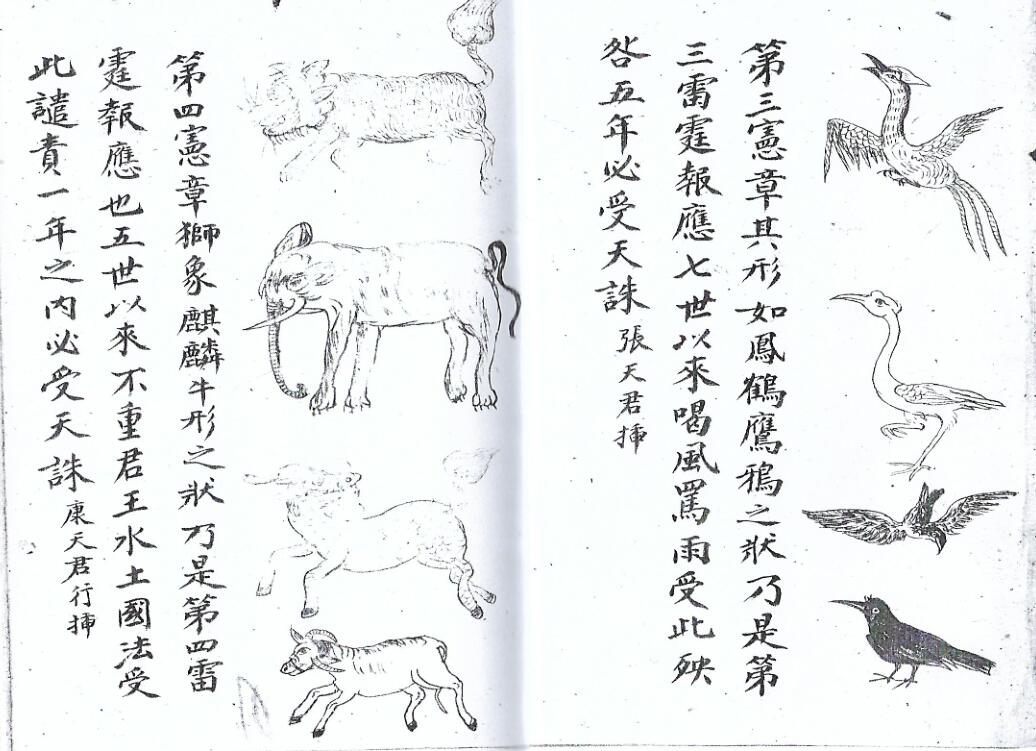 第三憲章其形如鳳鶴鷹鴉之狀乃是第
三雷霆報應七世以來喝風罵雨受此殃
咎五年必受天誅張天君揷
第四憲章獅象麒麟牛形之狀乃是第四雷
霆報應也五世以來不重君王水土國法受
此譴責一年之內必受天誅康天君行揷